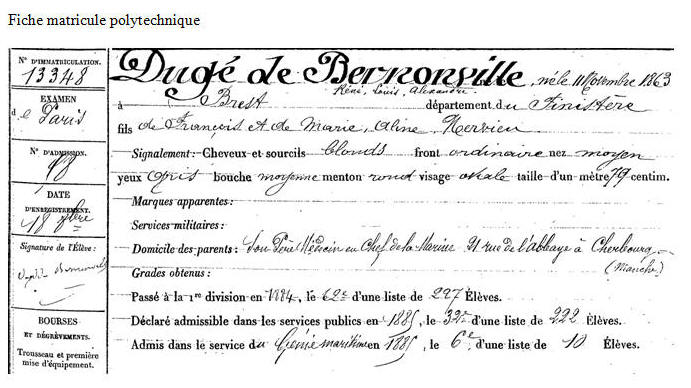 Fiche matricule polytechnique
N° D'IMMATRICULATION.
13348
EXAMEN
de Paris
N° D'ADMISSION.
DATE
D'ENREGISTREMENT.
18 8bre
Signature de l'Élève :
BOURSES
ET DÉGRÈVEMENTS.
Trousseau et première
mise d'équipement.
Dugé de Bernonville né le 11 Novembre 1863
René, Louis, Alexandre
à Brest département du Finistère
fils de François et de Marie, Aline Hervieu
Signalement : Cheveux et sourcils blonds front ordinaire nez moyen
yeux gris bouche moyenne menton rond visage ovale taille d'un mètre 79 centim.
Marques apparentes :
Services militaires :
Domicile des parents : Son Père Médecin en Chef de la Marine 21 rue de l'abbaye à Cherbourg
(Manche)
Grades obtenus :
Passé à la 1re division en 1884, le 62e d'une liste de 227 Élèves.
Déclaré admissible dans les services publics en 1885, le 32e d'une liste de 222 Élèves.
Admis dans le service du Génie maritime en 1885, le 6e d'une liste de 10 Élèves.